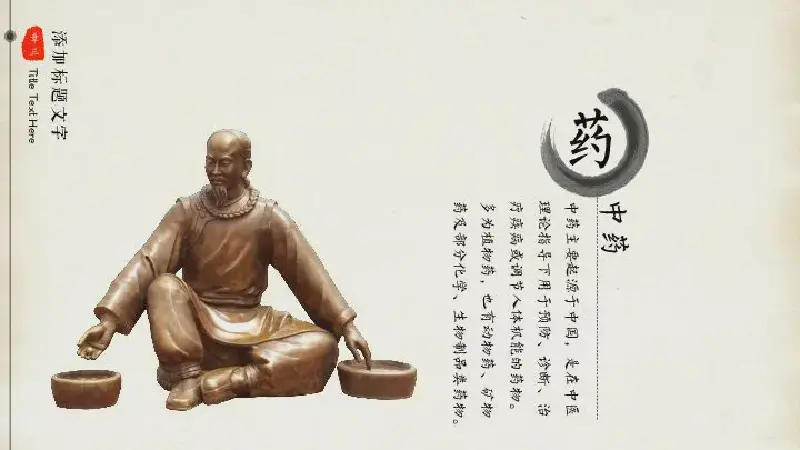 添加标题文字
Title Text Here
药
中药
中药主要起源于中国，是在中医
理论指导下用于预防、诊断、治
疗疾病或调节人体机能的药物。
多为植物药，也有动物药、矿物
药及部分化学、生物制品类药物。